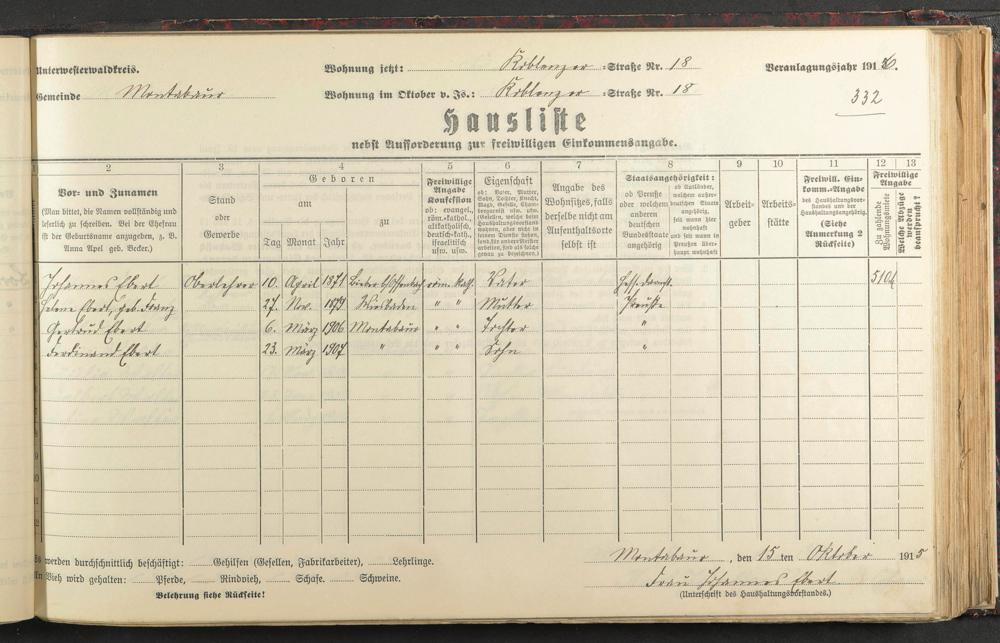 Unterwesterwaldkreis.
Wohnung jetzt: Koblenzer =Straße Nr. 18
Veranlagungsjahr 1916.
Gemeinde Montabaur
Wohnung im Oktober v. Js.: Koblenzer =Straße Nr. 18
332
Hausliste
nebst Aufforderung zur freiwilligen Einkommensangabe.
1 2 3 4 5 6 7 8 9 10 11 12 13
Vor- und Zunamen
(Man bittet, die Namen vollständig und
leserlich zu schreiben. Bei der Ehefrau
ist der Geburtsname anzugeben, z. B.
Anna Apel geb. Becker.)
Stand
oder
Gewerbe
Geboren
am
zu
Tag Monat Jahr
Freiwillige
Angabe
Konfession
ob: evangel.,
röm.-kathol.,
altkatholisch,
deutsch-kath.,
israelitisch
usw. usw.
Eigenschaft
ob: Vater, Mutter,
Sohn, Tochter, Knecht,
Magd, Geselle, Cham-
bregarnist usw. usw.
(Gesellen, welche beim
Haushaltungsvorstand
wohnen, aber nicht in
seinem Dienste stehen,
sind als solche
genau zu bezeichnen.)
Angabe des
Wohnsitzes, falls
derselbe nicht am
Aufenthaltsorte
selbst ist
Staatsangehörigkeit:
ob Preuße
oder welchem
anderen
deutschen
Bundesstaate
angehörig
ob Ausländer,
welchem außer-
deutschen Staate
angehörig,
seit wann hier
wohnhaft
und seit wann in
Preußen über-
haupt wohnhaft
Arbeit-
geber
Arbeits-
stätte
Freiwill. Ein-
komm.-Angabe
des Haushaltungsvor-
standes und der
Haushaltungsangehörig.
(Siehe
Anmerkung 2
Rückseite)
Freiwillige
Angabe
Zu zahlende
Wohnungsmiete
Welche Abzüge
werden
beansprucht?
Johannes Ebert Oberlehrer 10. April 1871 röm. kath. Vater Hess. Darmst. 510 M
Helene Ebert, geb. Franz 27. Nov. 1873 Wiesbaden " " Mutter Preuße
Gertrud Ebert 6. März 1906 Montabaur " " Tochter "
Ferdinand Ebert 23. März 1907 " " " Sohn "
Es werden durchschnittlich beschäftigt: Gehilfen (Gesellen, Fabrikarbeiter), Lehrlinge.
An Vieh wird gehalten: Pferde, Rindvieh, Schafe. Schweine.
Belehrung siehe Rückseite!
Montabaur, den 15 ten Oktober 1915
Frau Johannes Ebert
(Unterschrift des Haushaltungsvorstandes.)